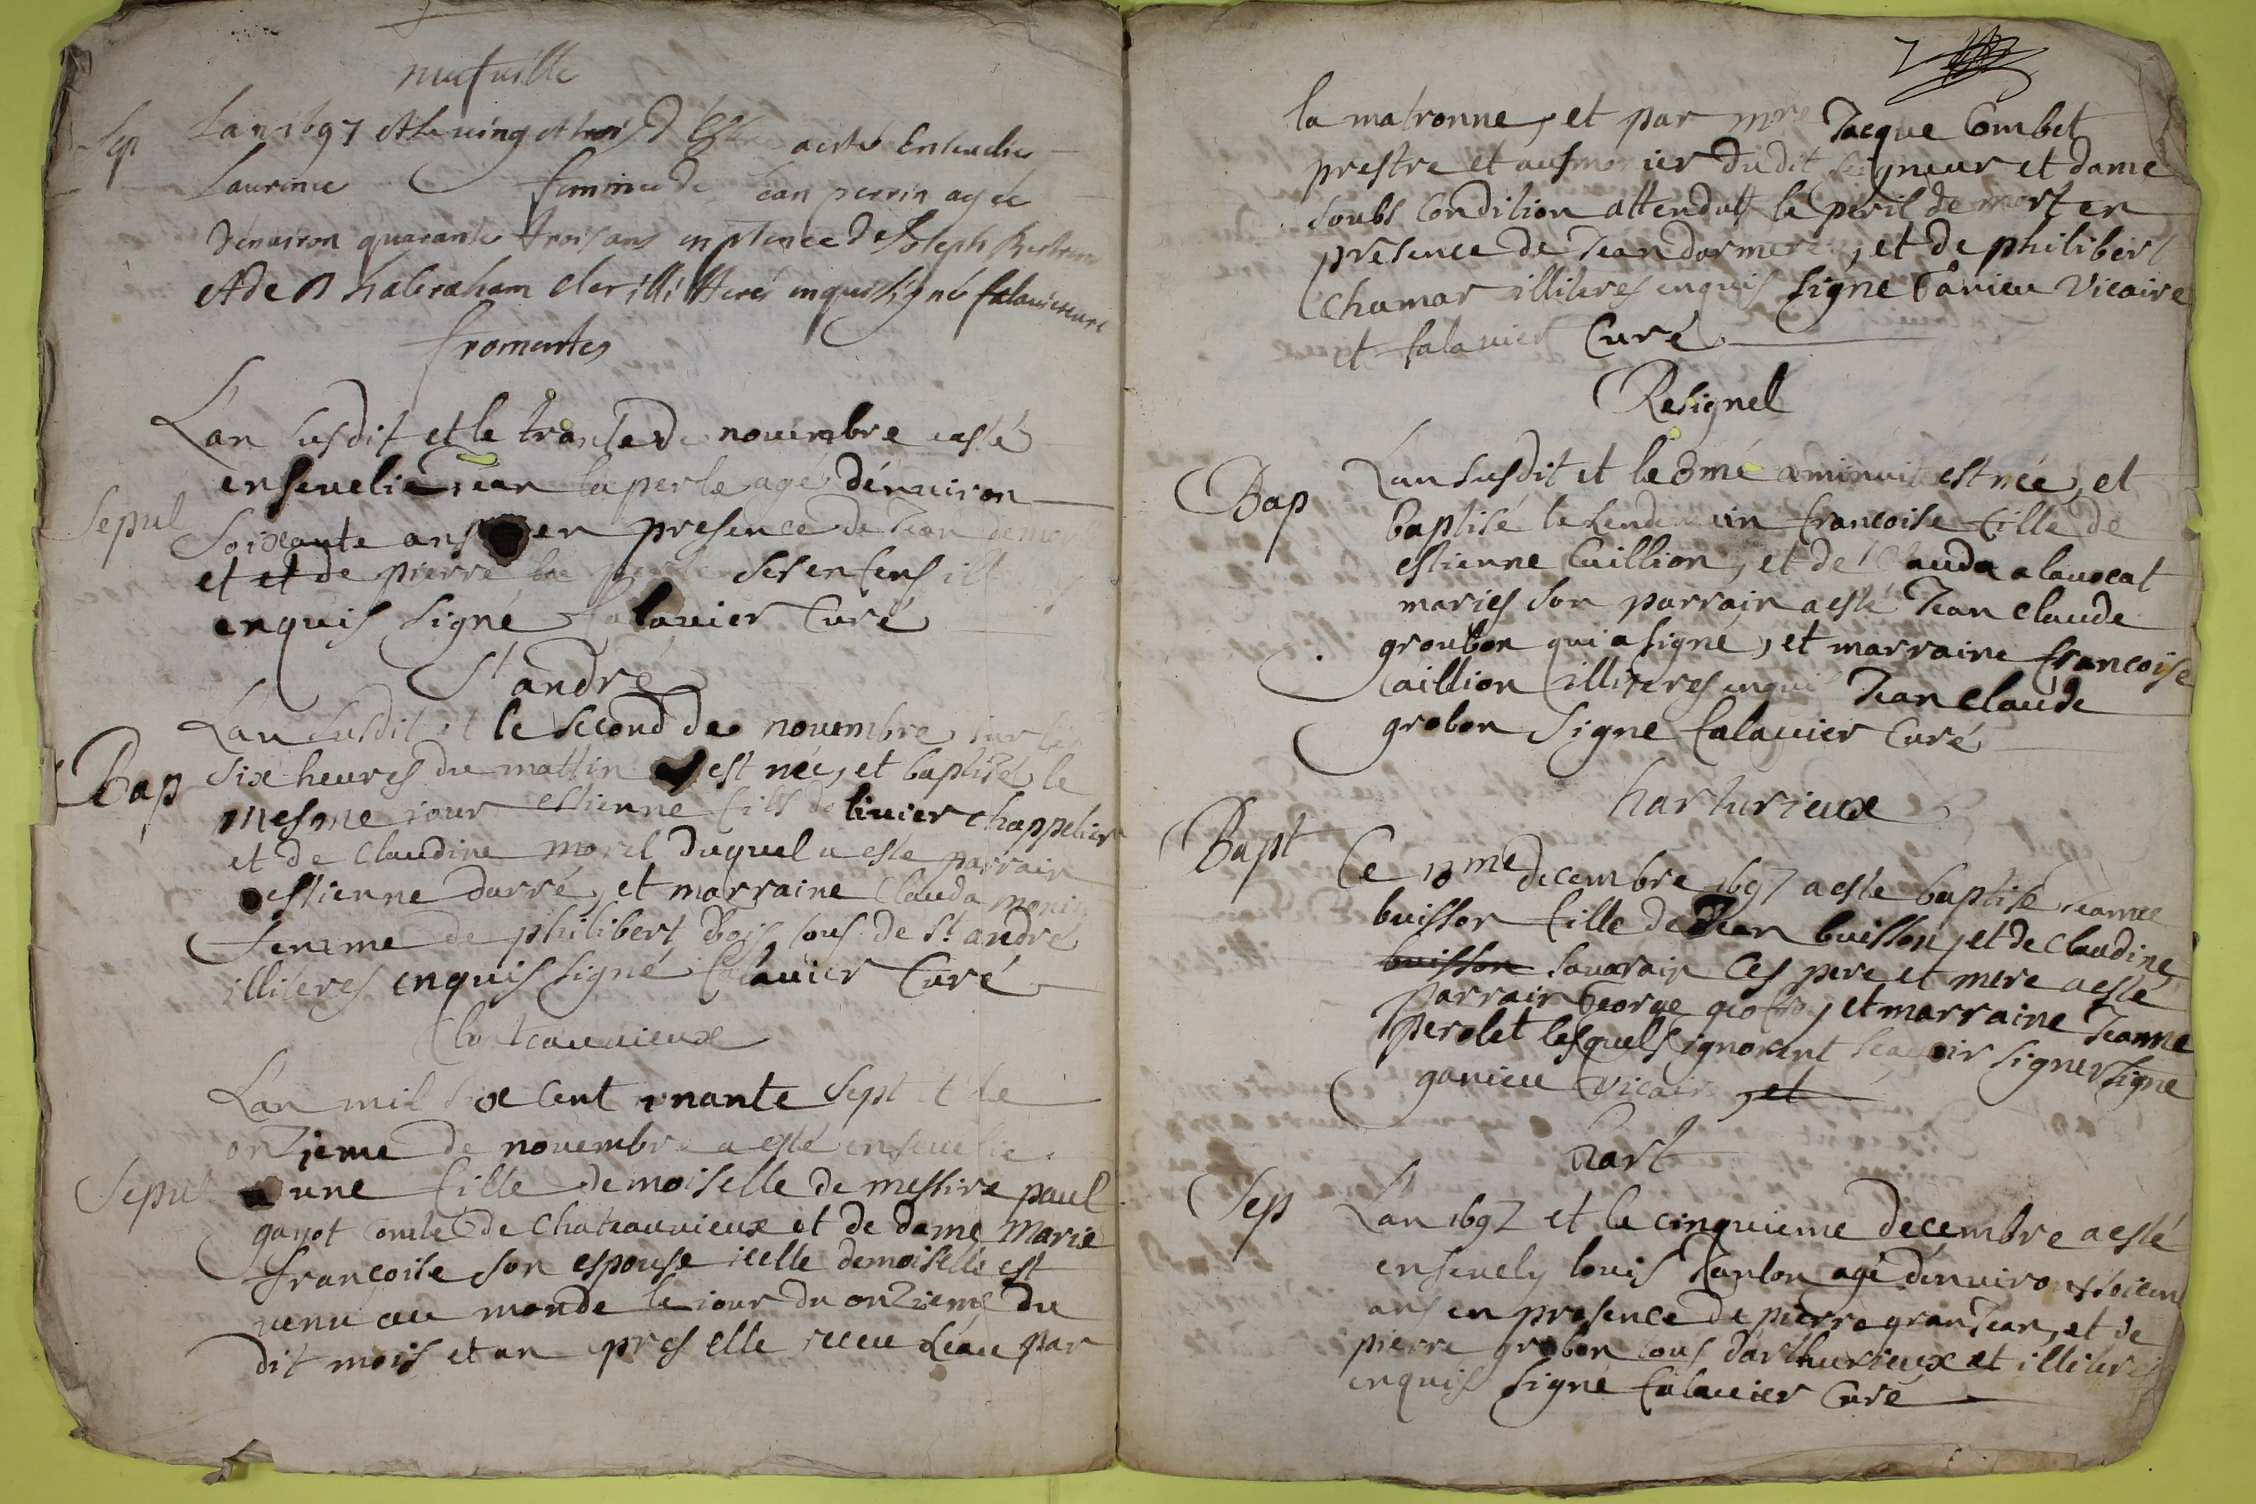 neufville
Sep
Lan 1697 et le ving et trois d
aesté Ensevelie
Laurence femme de Jean perrin agée
d'environ quarante trois ans en pnce de Joseph
et de habraham cler illitterés enquis signé falavier curé
fromentes
L'an susdit et le trante de novembre aesté
ensevelie Jean laperle agé d'environ
Sepul
soixante ans en presence de Jean
et et de pierre ses enfens ill
enquis signé falavier Curé
St andré
L'an susdit et le second de novembre sur les
Bap
six heures du mattin est née, et baptisé le
mesme jour estienne fils de livier chappelier
et de Claudine morel duquel a este parrain
estienne darré, et marraine Clauda
femme de philibert tous de St andré
illiteres enquis signé falavier Curé
Chateauvieux
L'an mil six cent nonante sept et le
onzieme de novembre a esté ensevelie
Sepul
une fille demoiselle de messire paul
gayot comte de Chateauvieux et de dame Marie
françoise son espouse icelle demoiselle est
venu au monde le jour du onzieme du
dit mois et an pres elle receu leau par
7
la matronne, et par mre Jacque Combet
prestre et ausmonier dudit seigneur et dame
soubs condition attendutt le peril de mort en
presence de Jean , et de philibert
chamar illiteres enquis signe Ganieu Vicaire
et falavier Curé
Resignel
Bap
L'an susdit et le 3me a minuit est née, et
baptisé le lendemain francoise fille de
estienne Caillion, et de Clauda alavocat
maries son parrain a esté Jean claude
groubon qui a signé, et marraine francoise
Caillion illiteres enquis Jean Claude
grobon signe falavier curé
harturieux
Bapt
Ce 13me decembre 1697 a este baptisé Jeanne
buisson fille de Jean buisson, et de Claudine
buisson savarain Ces pere et mere a esté
parrain George , et marraine Jeanne
perolet lesquels ignorant scavoir signer signe
ganieu vicaire, et
hart
Sep
L'an 1697 et le cinquieme decembre a esté
ensevely louis agé d'environ
ans en presence de pierre granJean, et de
pierre grobon tous d'arthurieux et illiteres
enquis signe falavier curé